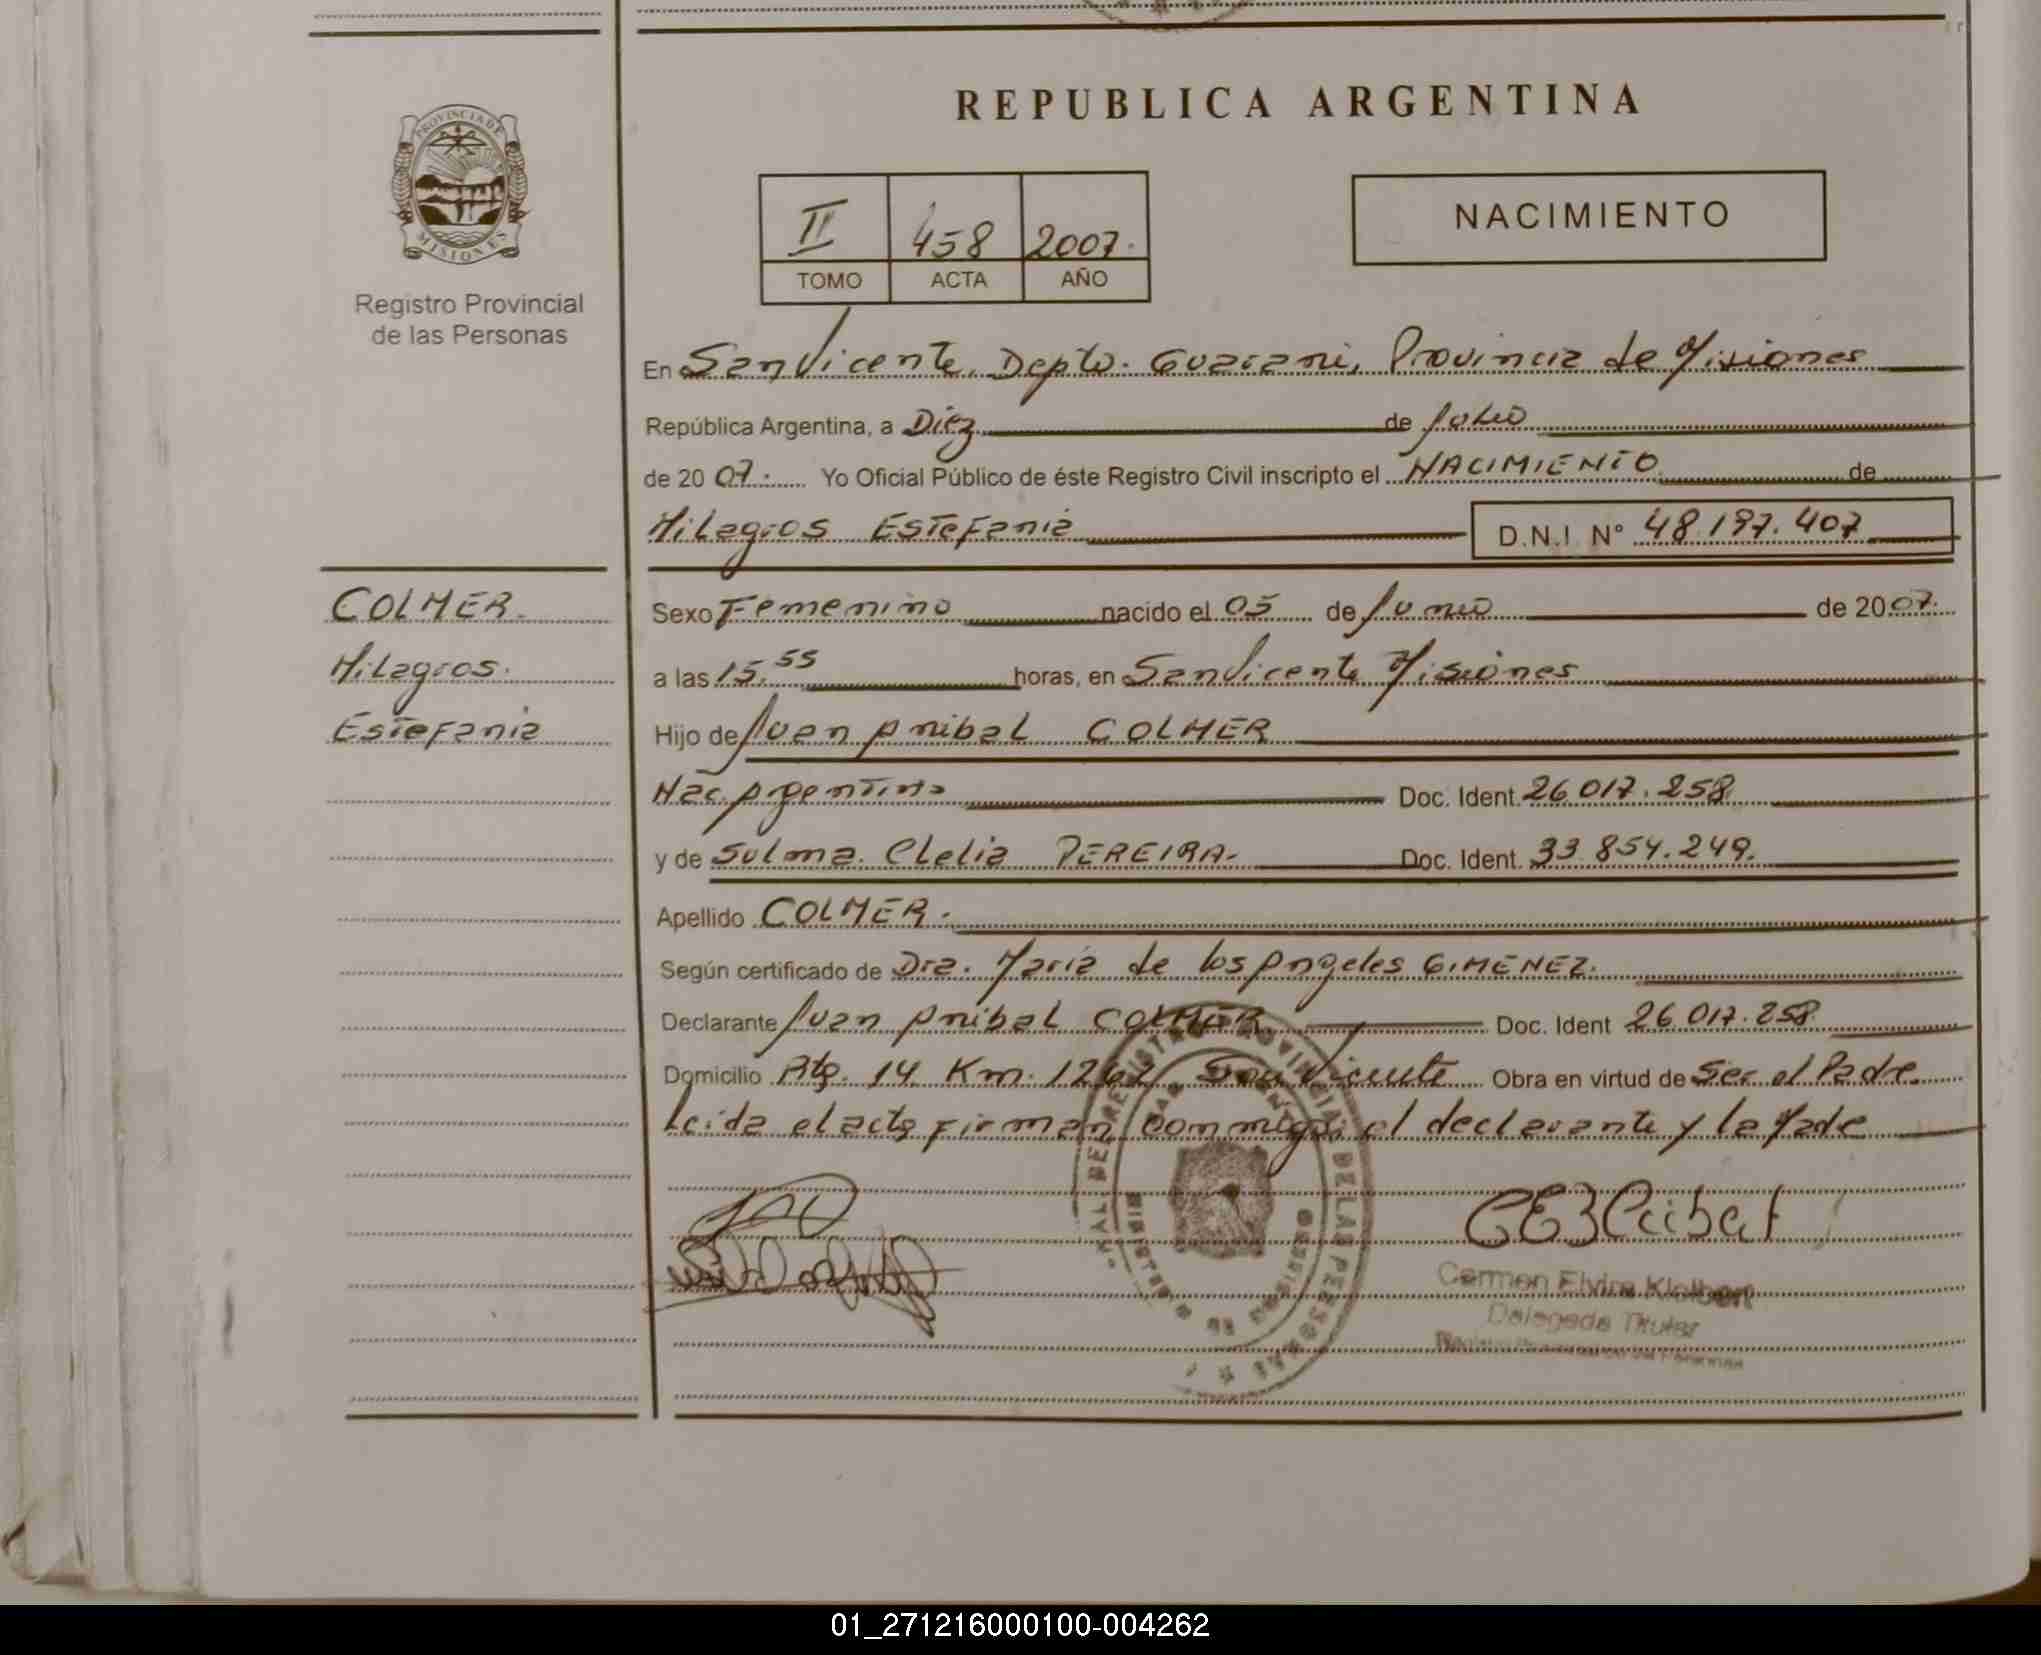 REPUBLICA ARGENTINA
PROVINCIA DE
MISIONES
Registro Provincial
de las Personas
II 458 2007.
TOMO ACTA AÑO
NACIMIENTO
En San Vicente, Depto. Guarani, Provincia de Misiones
República Argentina, a Diez de Julio
de 2007. Yo Oficial Público de éste Registro Civil inscripto el NACIMIENTO de
Milagros Estefania D.N.I Nº 48.197.407
COLMER.
Milagros.
Estefania
Sexo Femenino nacido el 05 de Junio de 2007.
a las 15.55 horas, en San Vicente Misiones
Hijo de Juan Anibal COLMER
Nac. Argentina Doc. Ident. 26.017.258
y de Sulma Clelia PEREIRA.- Doc. Ident. 33.854.249.
Apellido COLMER.
Según certificado de Dra. Maria de los Angeles GIMENEZ.
Declarante Juan Anibal COLMER Doc. Ident 26.017.258
Domicilio Rta. 14 Km. 1262 San Vicente Obra en virtud de Ser el Padre
Leida el acta firman conmigo el declarante y la Madre
Carmen Elvira
Delegada Titular
01_271216000100-004262